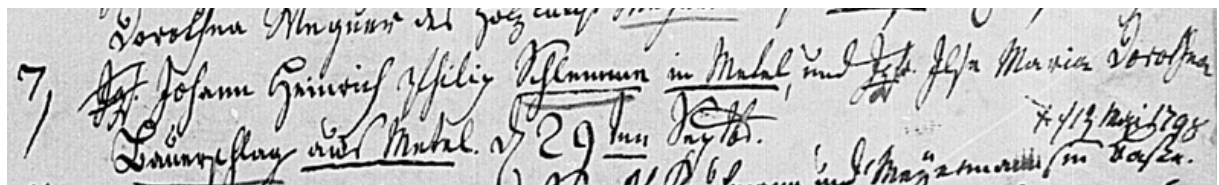 Dorothea Wegner des Holz
7) Jgs. Johann Heinrich Philip Schlemme in Metel, und Jgfr. Ilse Maria Dorothea
Bauerschlag aus Metel. d 29ten Septbr. * 12 Mai 1798
und Meyermann in Basse.